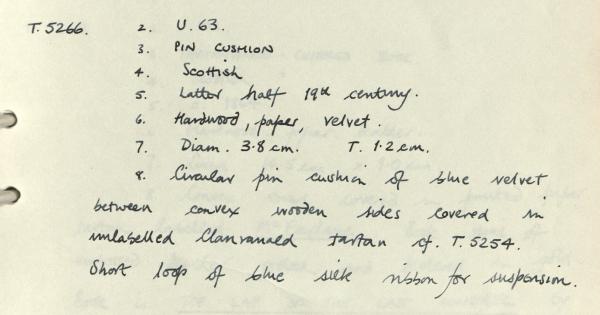 T.5266. 2. U.63.
3. PIN CUSHION
4. Scottish
5. Latter half 19th century.
6. Hardwood, paper, velvet.
7. Diam. 3.8cm. T. 1.2cm.
8. Circular pin cushion of blue velvet
between convex wooden sides covered in
unlabelled Clanranald tartan cf. T.5254.
Short loop of blue silk ribbon for suspension.